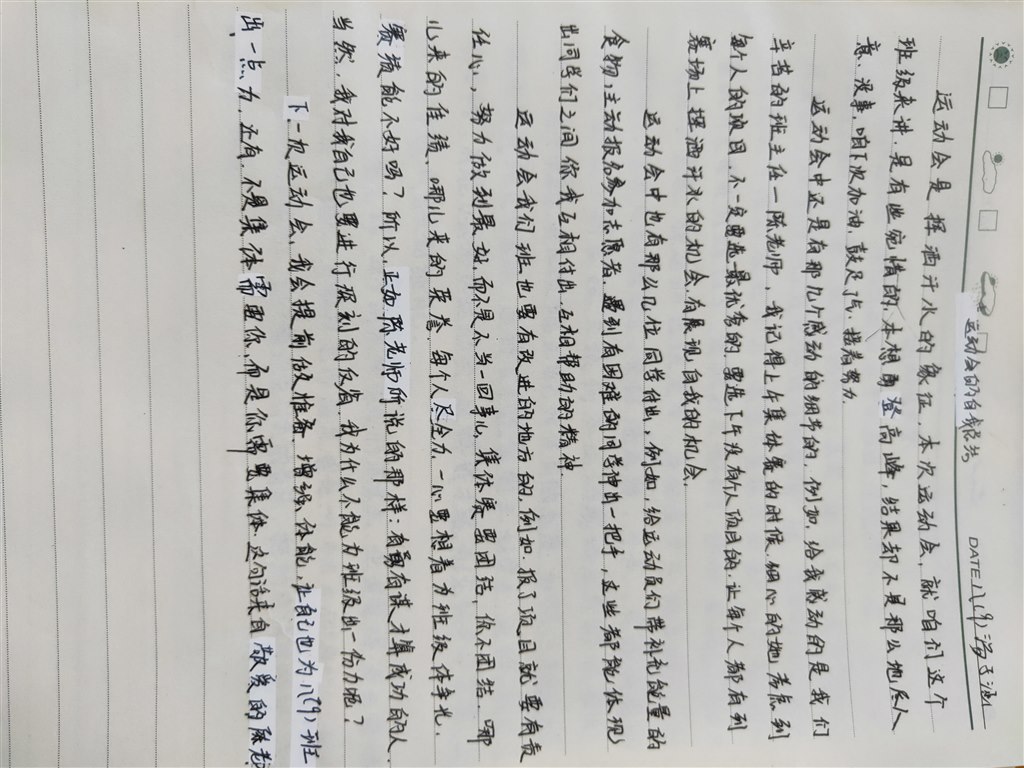 DATE 八(9)
运动会的自我思考
运动会是挥洒汗水的象征，本次运动会，就咱们这个
班级来讲，是有些惋惜的，本想勇登高峰，结果却不是那么地尽人
意，没事，咱下次加油，鼓足气，接着努力.
运动会中还是有那几个感动的细节的，例如，给我感动的是我们
辛苦的班主任—陈老师，我记得上午集体赛的时候，细心的她考虑到
每个人的项目，不一定要选最优秀的，要选下午没有队项目的，让每个人都有到
赛场上挥洒汗水的机会，有展现自我的机会.
运动会中也有那么几位同学付出，例如，给运动员们带补充能量的
食物，主动报名参加志愿者，遇到有困难的同学伸出一把手，这些都能体现
出同学们之间你我互相付出，互相帮助的精神
运动会我们班也要有改进的地方的，例如，报了项目就要有责
任心，努力做到最好，而不是不当一回事儿，集体要要团结，你不团结，哪
儿来的佳绩，哪儿来的荣誉，每个人尽全力，一心要想着为班级体争光，
赛绩能不好吗？所以，正如陈老师所说的那样：有勇有谋才算成功的人.
当然，我对我自己也要进行深刻的反省，我为什么不能为班级出一份力呢？
下一次运动会，我会提前做准备，增强体能，让自己也为八(9)班
出一点力，还有，不是集体需要你，而是你需要集体，这句话来自敬爱的陈